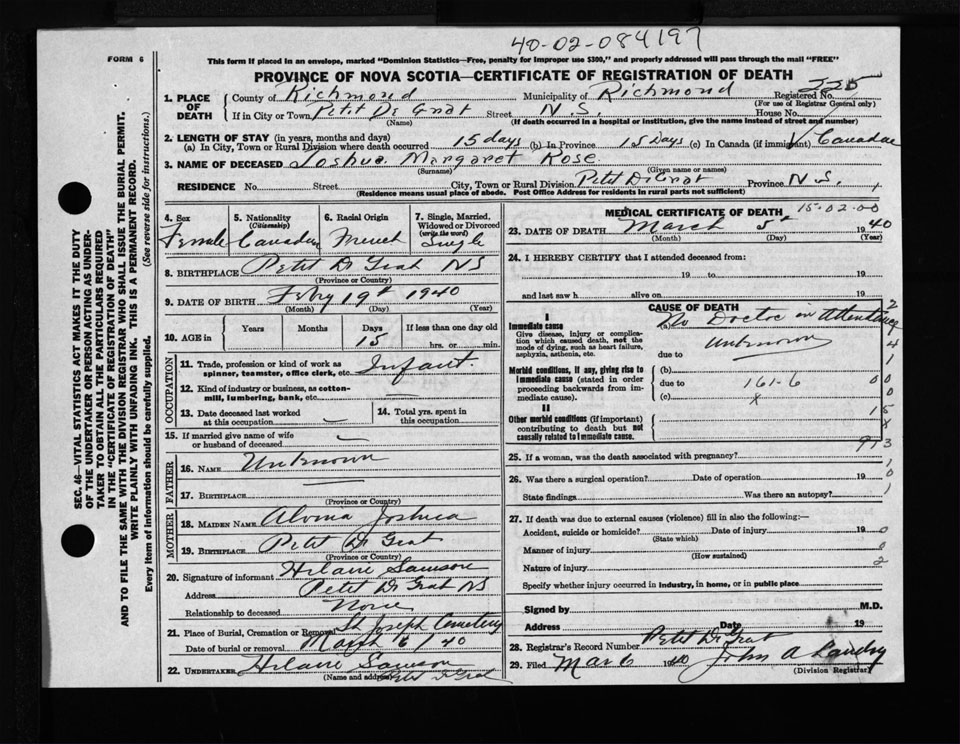 40-02-084197
FORM 6
This form if placed in an envelope, marked "Dominion Statistics—Free, penalty for improper use $300," and properly addressed will pass through the mail "FREE"
PROVINCE OF NOVA SCOTIA—CERTIFICATE OF REGISTRATION OF DEATH
1. PLACE OF DEATH County of Richmond Municipality of Richmond Registered No. 225
(For use of Registrar General only)
If in City or Town Petit De Grat Street N.S. House No.
(Name) (If death occurred in a hospital or institution, give the name instead of street and number)
2. LENGTH OF STAY (in years, months and days)
(a) In City, Town or Rural Division where death occurred 15 days (b) In Province 15 Days (c) In Canada (if immigrant) Canadian
3. NAME OF DECEASED Joshua Margaret Rose
(Surname) (Given name or names)
RESIDENCE No. Street City, Town or Rural Division Petit De Grat Province N.S.
(Residence means usual place of abode. Post Office Address for residents in rural parts not sufficient)
4. Sex 5. Nationality 6. Racial Origin 7. Single, Married,
(Citizenship) Widowed or Divorced
(write the word)
Female Canadian French Single
8. BIRTHPLACE Petit D Grat NS
(Province or Country)
9. DATE OF BIRTH Feby 19th 1940
(Month) (Day) (Year)
10. AGE in Years Months Days If less than one day old
15 hrs. or min.
OCCUPATION
11. Trade, profession or kind of work as
spinner, teamster, office clerk, etc. Infant.
12. Kind of industry or business, as cotton-
mill, lumbering, bank, etc.
13. Date deceased last worked
at this occupation
14. Total yrs. spent in
this occupation
15. If married give name of wife
or husband of deceased
FATHER
16. NAME Unknown
17. BIRTHPLACE
(Province or Country)
MOTHER
18. MAIDEN NAME Alvina Joshua
19. BIRTHPLACE Petit D Grat
(Province or Country)
20. Signature of informant Hilaire Samson
Address Petit D Grat NS
Relationship to deceased None
21. Place of Burial, Cremation or Removal St Joseph Cemetery
Date of burial or removal March 6/40
22. UNDERTAKER Hilaire Samson
(Name and address) Petit D Grat
MEDICAL CERTIFICATE OF DEATH 15-02-00
23. DATE OF DEATH March 5th 1940
(Month) (Day) (Year)
24. I HEREBY CERTIFY that I attended deceased from:
19 to 19
and last saw h alive on 19
CAUSE OF DEATH
I
Immediate cause
Give disease, injury or complica-
tion which caused death, not the
mode of dying, such as heart failure,
asphyxia, asthenia, etc.
(a) No Doctor in attendance
unknown
due to
Morbid conditions, if any, giving rise to
immediate cause (stated in order
proceeding backwards from im-
mediate cause).
(b)
due to 161-6
(c) x
II
Other morbid conditions (if important)
contributing to death but not
causally related to immediate cause.
2
4
1
00
0
15
x
913
1
0
1
0
0
2
25. If a woman, was the death associated with pregnancy?
26. Was there a surgical operation? Date of operation 19
State findings Was there an autopsy?
27. If death was due to external causes (violence) fill in also the following:—
Accident, suicide or homicide? Date of injury 19
(State which)
Manner of injury
(How sustained)
Nature of injury
Specify whether injury occurred in industry, in home, or in public place
Signed by M.D.
Address Date 19
28. Registrar's Record Number Petit D Grat
29. Filed Mar 6 1940 John A Landry
(Division Registrar)
SEC. 46—VITAL STATISTICS ACT MAKES IT THE DUTY
OF THE UNDERTAKER OR PERSON ACTING AS UNDER-
TAKER TO OBTAIN ALL THE PARTICULARS REQUIRED
IN THE "CERTIFICATE OF REGISTRATION OF DEATH"
AND TO FILE THE SAME WITH THE DIVISION REGISTRAR WHO SHALL ISSUE THE BURIAL PERMIT.
WRITE PLAINLY WITH UNFADING INK. THIS IS A PERMANENT RECORD.
Every item of information should be carefully supplied. (See reverse side for instructions.)